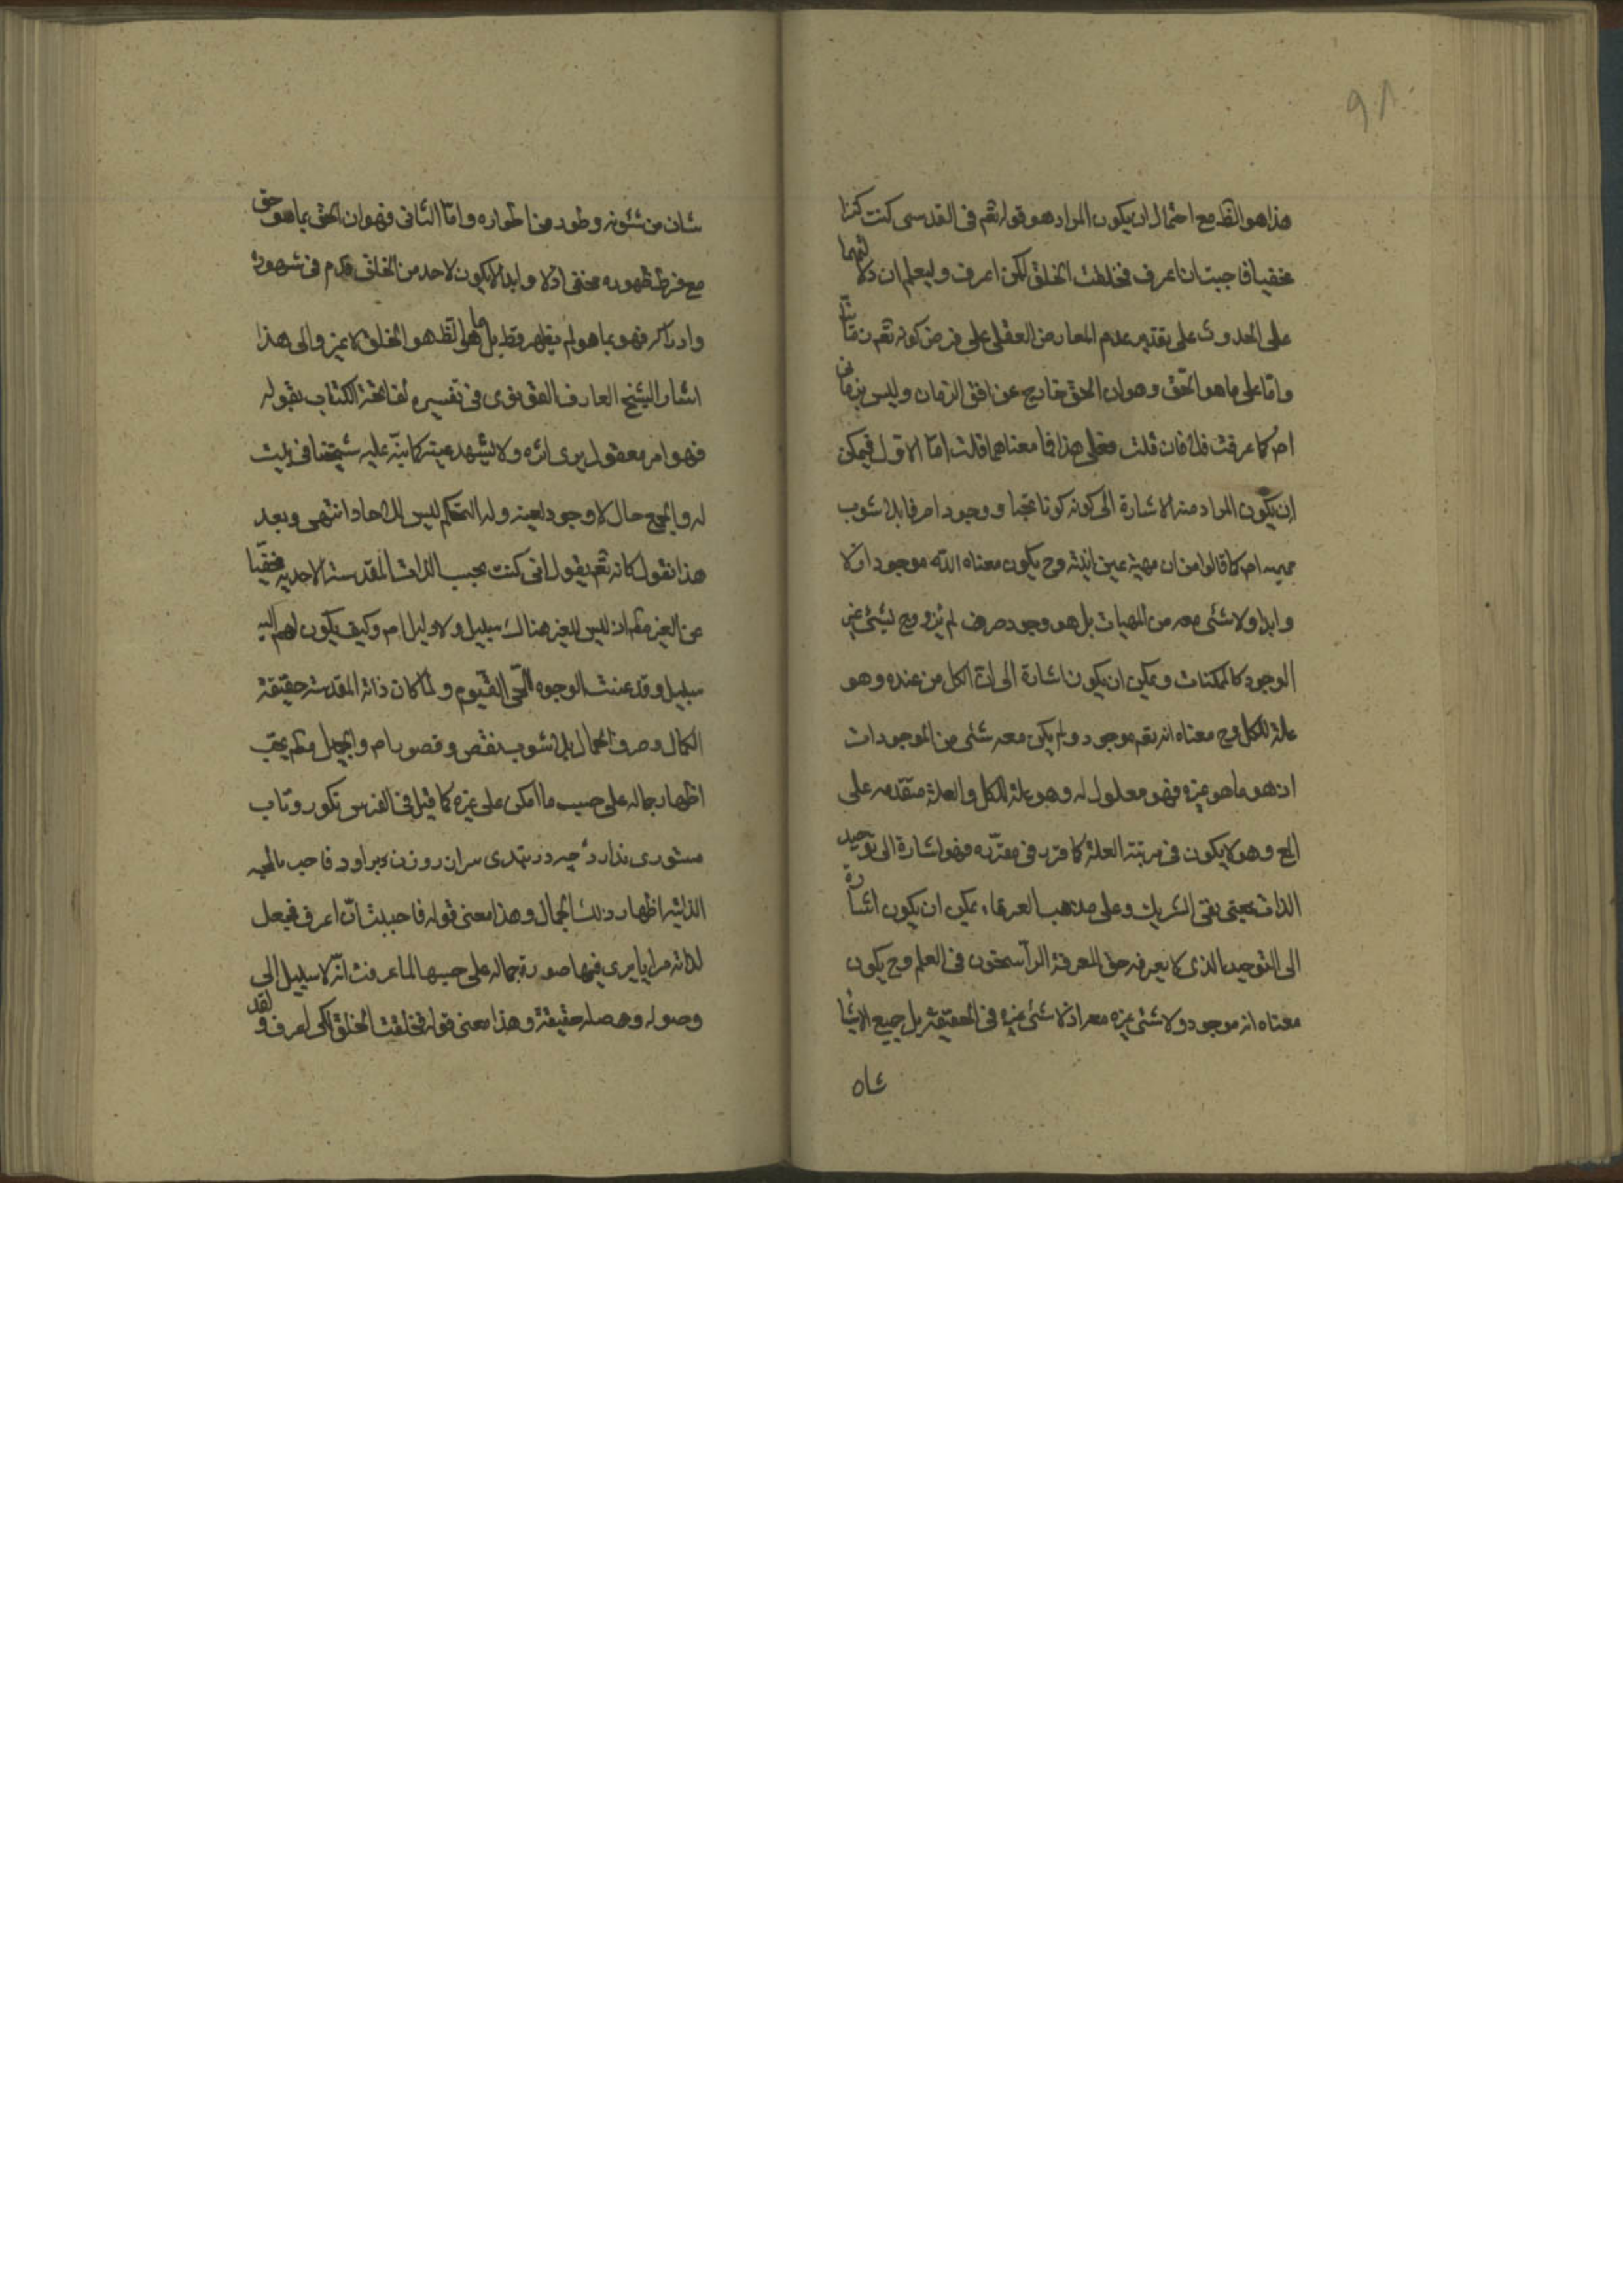 هذا هو الظ مع احتمال ان يكون المراد هو قوله تعم فى القدسى كنت كنزا
مخفيا فاحببت ان اعرف فخلقت الخلق لكى اعرف وليعلم ان دلالتهما
على الحدوث على تقدير عدم المعارض العقلى على فرض كونه تعم
واما على ما هو الحق وهو ان الحق خارج عن افق الزمان وليس بزمانى
اصلا كما عرفت فلا فان قلت فعلى هذا فما معناهما قلت اما الاول فيمكن
ان يكون المراد منه الاشارة الى كونه كونا بحتا ووجودا صرفا بلا شوب
مهية اصلا كما قالوا من ان مهيته عين انيته وح يكون معناه الله موجود ازلا
وابدا ولا شئى معه من المهيات بل هو وجود صرف لم يزوج لشئى غير
الوجود كالممكنات ويمكن ان يكون اشارة الى ان الكل من عنده وهو
علة للكل وح معناه انه تعم موجود ولم يكن معه شئى من الموجودات
اذ هو ما هو غيره فهو معلول له وهو علة للكل والعلة متقدمه على
المع وهو لا يكون فى مرتبة العلة كما قرر فى مقره فهو اشارة الى توحيد
الذات بمعنى نفى الشريك وعلى مذهب العرفاء يمكن ان يكون اشارة
الى التوحيد الذى لا يعرفه حق المعرفة الراسخون فى العلم وح يكون
معناه انه موجود ولا شئى غيره معه اذ لا شئى غيره فى الحقيقة بل جميع الاشيا
شان من شئونه وطور من اطواره واما الثانى فهو ان الحق بما هو حق
مع فرط ظهوره مختفى ازلا وابدا لا يكون لاحد من الخلق قدم فى شهوده
وادراكه فهو بما هو لم يظهر قط بل ما هو الظ هو الخلق لا غير والى هذا
اشار الشيخ العارف القونوى فى تفسيره لفاتحة الكتاب بقوله
فهو امر معقول يرى اثره ولا يشهد عينه كما نبه عليه شيخنا فى بيت
له والجمع حال لا وجود لعينه وله التحكم ليس للاحاد انتهى وبعد
هذا نقول كانه تعم يقول انى كنت بحسب الذات المقدسة الاحدية مخفيا
عن الغير اذ ليس للغير هناك سبيل ولا دليل وكيف يكون لهم اليه
سبيل وقد عنت الوجوه للحى القيوم ولما كان ذاته المقدسة حقيقة
الكمال وصرف الجمال بلا شوب نقص وقصور اصلا والجميل يحب
اظهار جماله على حسب ما امكن على غيره كما قيل فى الفرس نكو رو تاب
مستورى ندارد چه در بندى سر از روزن بر اود فاحب بالمحبه
الذاتيه اظهار ذلك الجمال وهذا معنى قوله فاحببت ان اعرف فجعل
لذاته مرايا يرى فيها صورة جماله على حسبها لما عرفت انه لا سبيل الى
وصوله حقيقة وهذا معنى قوله فخلقت الخلق لكى اعرف ولقد
شان